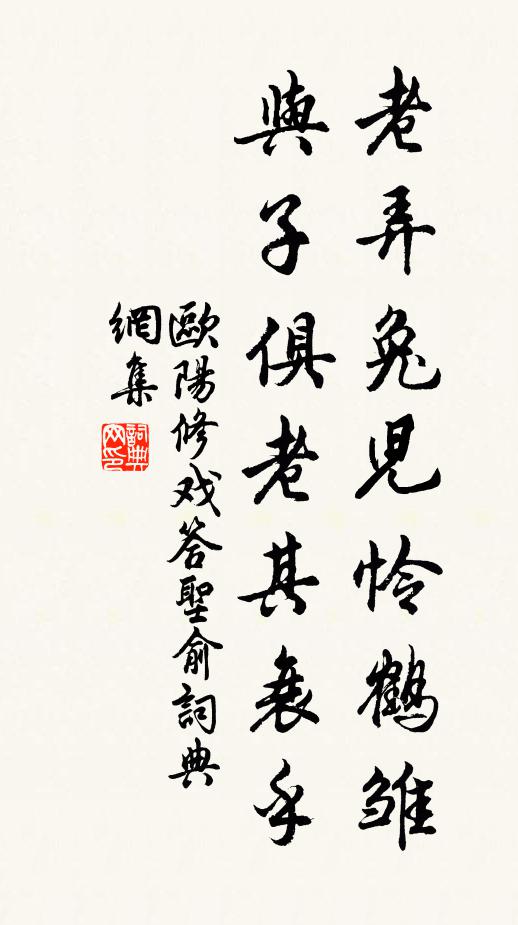 老弄兔児怜鶴雏
與子俱老其衰乎
歐陽修戏答聖俞詞典
網集
詞典网印